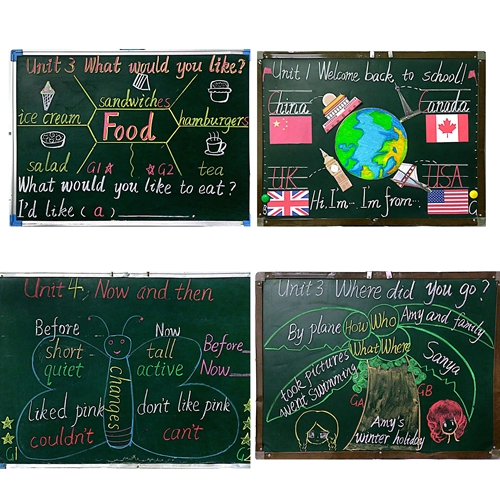 Unit 3 What would you like?
sandwiches
ice cream
Food
hamburgers
salad
G1
G2
tea
What would you like to eat?
I'd like (a)
Unit 1 Welcome back to school!
China
Canada
UK
USA
Hi, I'm... I'm from...
G
Unit 4 Now and then
Before
short
quiet
Now
tall
active
Before
Now
changes
liked pink
couldn't
don't like pink
can't
G1
G2
Unit 3 Where did you go?
By plane
How
Who
Amy and family
What
Where
took pictures
went swimming
Sanya
GA
GB
Amy's
winter holiday